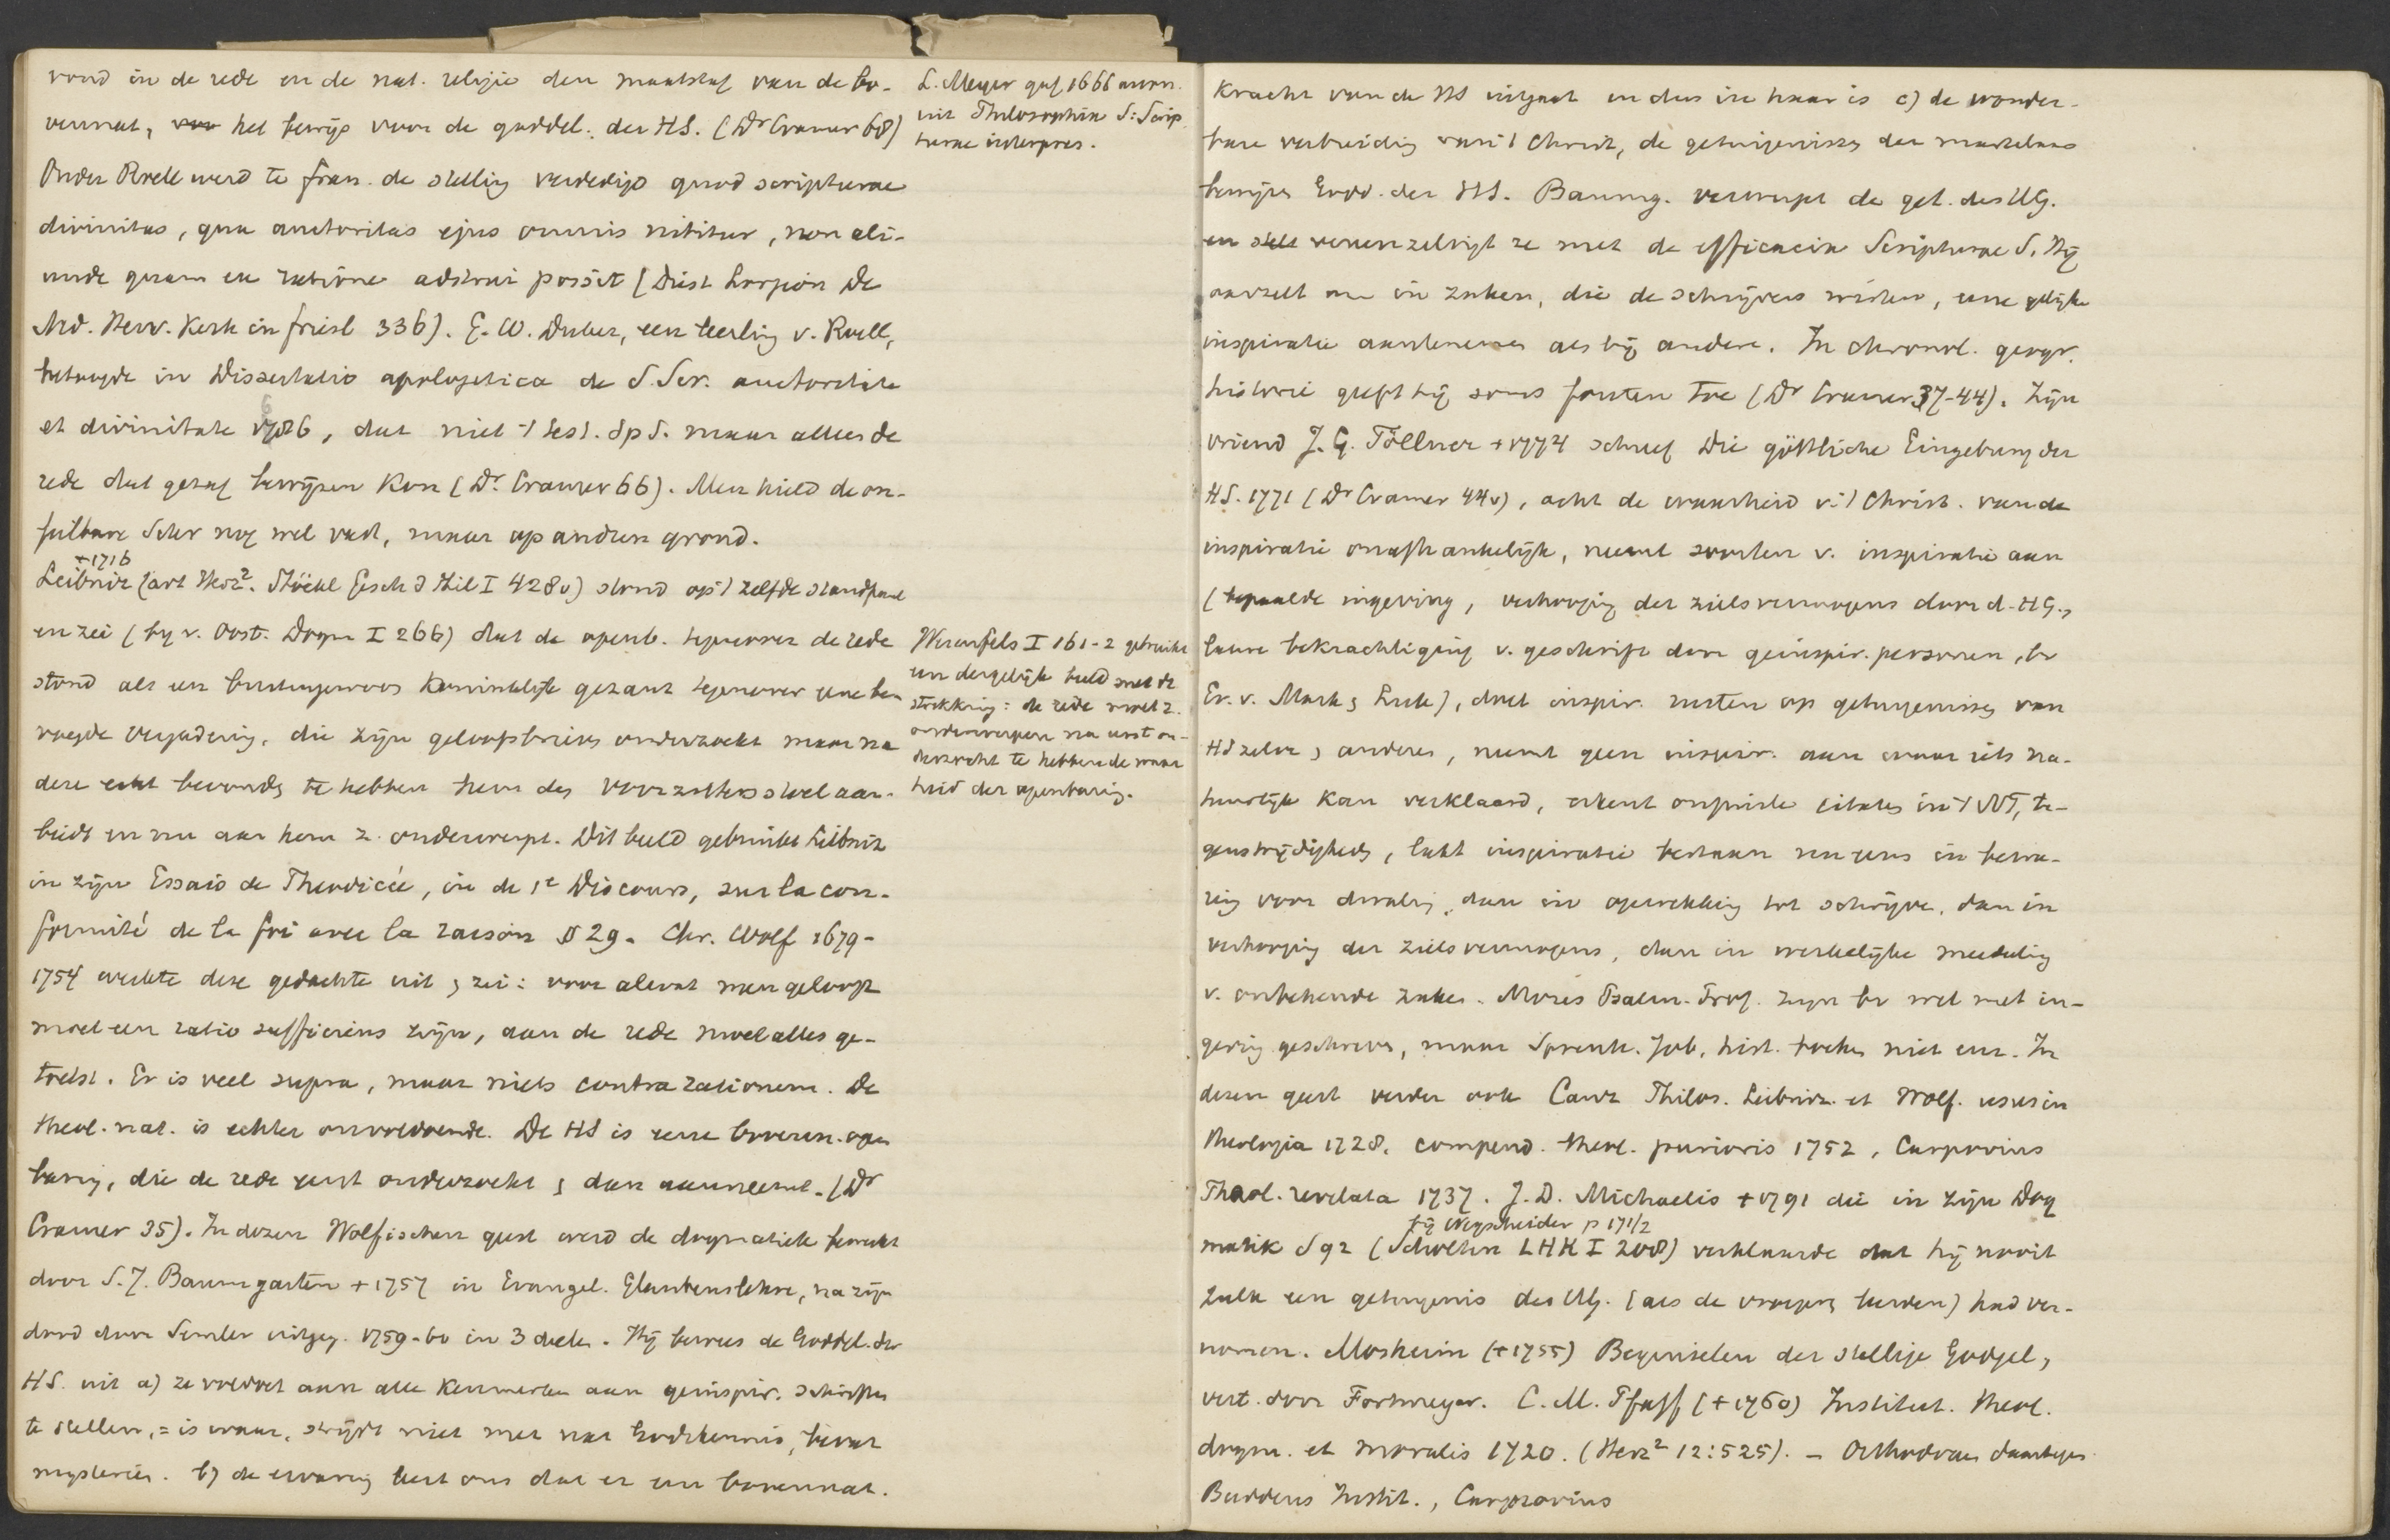 vond in de rede en de nat. religie den maatstaf van de bo-
vennat, het bewijs voor de goddel. der HS. (Dr Cramer 68)
Onder Roell werd te Fran. de stelling verdedigd quod scripturae
divinitas, qua auctoritas ejus omnis nititur, non ali-
unde quam ex ratione adstrui possit (Diest Lorgion De
Ned. Herv. Kerk in Friesl 336). G. W. Duker, een leerling v. Roell,
betoogde in Dissertatio apologetica de S. Scr. auctoritate
et divinitate 1686, dat niet 't test. Sp S. maar alleen de
rede dat gezag bewijzen kon (Dr. Cramer 66). Men hield de on-
feilbare Schr nog wel vast, maar op andren grond.
+ 1716
Leibniz (art Herz². Stöckl Gesch d Phil I 428v) stond op 't zelfde standpunt
en zei (by v. Oost. Dogm I 266) dat de openb. tegenover de rede
stond als een buitengewoon Koninklijk gezant tegenover eene be
voegde vergadering, die zijn geloofsbrieven onderzoekt maar na
deze echt bevonden te hebben hem den voorzittersstoel aan-
biedt en nu aan hem z. onderwerpt. Dit beeld gebruikt Leibniz
in zijn Essais de Theodicée, in de 1e Discours, sur la con-
formité de la foi avec la raison § 29. Chr. Wolf 1679-
1754 werkte deze gedachte uit en zei: voor alwat men gelooft
moet een ratio sufficiens zijn, aan de rede moet alles ge-
toetst. Er is veel supra, maar niets contra rationem. De
theol. nat. is echter onvoldoende. De HS is eene bovenn. open
baring, die de rede eerst onderzoekt en dan aanneemt. (Dr
Cramer 35). In dezen Wolfischen geest werd de dogmatiek bewerkt
door S. J. Baumgarten + 1757 in Evangel. Glaubenslehre, na zijn
dood door Semler uitgeg. 1759-60 in 3 deelen. Hij bewees de Goddel. der
HS. uit a) ze voldoet aan alle kenmerken aan geinspir. schriften
te stellen, = is waar, strijdt niet met nat Godskennis, bevat
mysteriën. b) de ervaring leert ons dat er een bovennat.
L. Meyer gaf 1666 anon.
uit Philosophia S: Scrip
turae interpres.
Werenfels I 161-2 gebruikt
een dergelijk beeld met de
strekking: de rede moet z.
onderwerpen na eerst on-
derzocht te hebben de waar
heid der openbaring.
Kracht van de HS uitgaat en dus in haar is c) de wonder-
bare verbreiding van 't Christ, de getuigenissen der martelaars
bewijzen Godd. der HS. Baumg. verwerpt de get. des HG.
en vereenzelvigt ze met de efficacia Scripturae S. Hij
aarzelt om in zaken, die de schrijvers wisten, eene gelijke
inspiratie aantenemen als bij andere. In chronol. geogr.
historie geeft hij soms fouten toe (Dr Cramer 37-44). Zijn
vriend J. G. Töllner + 1774 schreef Die göttliche Eingebung der
HS. 1771 (Dr Cramer 44v), acht de waarheid v. 't Christ. van de
inspiratie onafhankelijk, neemt soorten v. inspiratie aan
(bepaalde ingeving, verhooging der zielsvermogens door d. HG.,
latere bekrachtiging v. geschrift door geinspir. personen, bv
Ev. v. Mark en Luk), doet inspir. rusten op getuigenissen van
HS zelve en anderen, neemt geen inspir. aan waar iets na-
tuurlijk kan verklaard, erkent onjuiste citaten in 't NT, te-
genstrijdigheden, laat inspiratie bestaan nu eens in bewa-
ring voor dwaling, dan in opwekking tot schrijven, dan in
verhooging der zielsvermogens, dan in werkelijke meedeling
v. onbekende zaken. Mozes Psalm. Prof. zijn bv wel met in-
geving geschreven, maar Spreuk. Job, hist. boeken niet enz. In
dezen geest verder ook Canz Philos. Leibniz. et Wolf. usus in
theologia 1728. compend. theol. purioris 1752, Carpovius
Theol. revelata 1737. J. D. Michaelis + 1791 die in zijn Dog
bij Wegscheider p 171/2
matik S 92 (Scholten LHK I 208) verklaarde dat hij nooit
zulk een getuigenis des HG. (als de vroegere leerden) had ver-
nomen. Mosheim (+ 1755) Beginselen der stellige Godgel,
vert. door Fortmeyer. C. M. Pfaff (+ 1760) Institut. theol.
dogm. et moralis 1720. (Herz² 12:525). – Orthodoxen daartegen
Buddeus Instit., Carpzovius